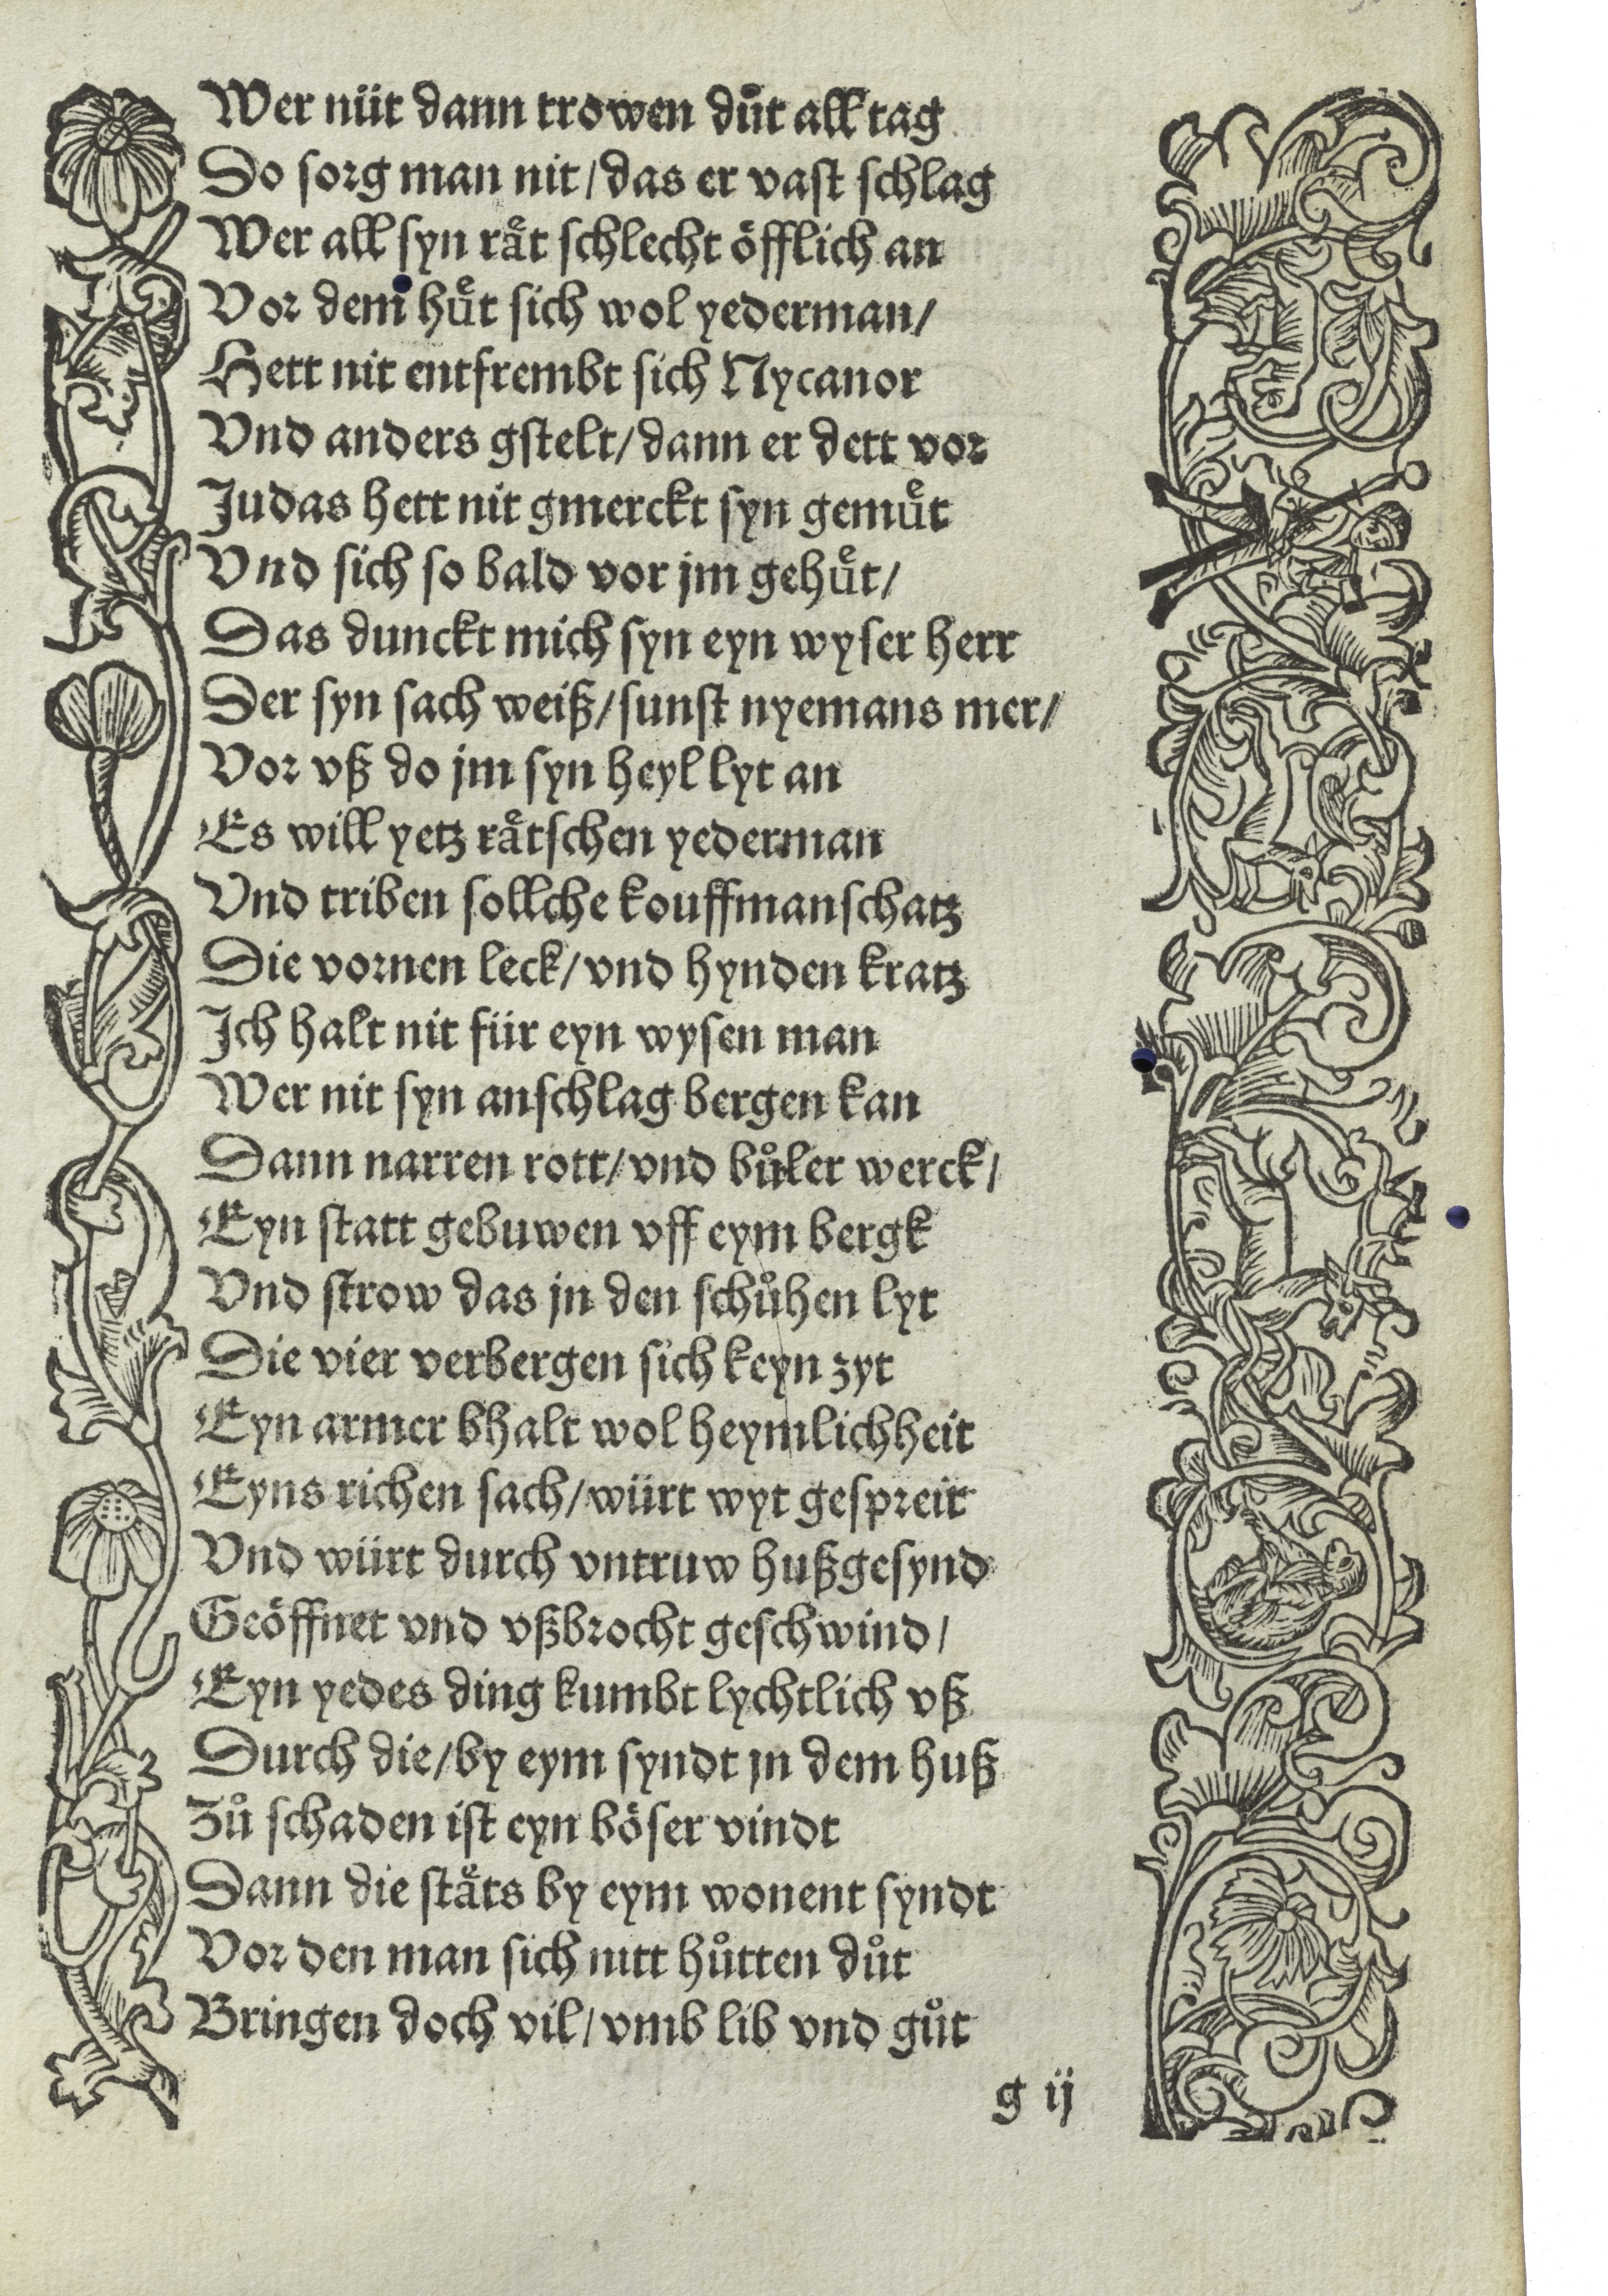 Wer nüt dann trowen důt all tag
Do sorg man nit/das er vast schlag
Wer all syn rå̈t schlecht öfflich an
Vor dem huͤt sich wol yederman/
Hett nit entfrembt sich Nycanor
Vnd anders gstelt/dann er dett vor
Judas hett nit gmerckt syn gemuͤt
Vnd sich so bald vor jm gehuͤt/
Das dunckt mich syn eyn wyser herr
Der syn sach weiß/sunst nyemans mer/
Vor vß do jm syn heyl lyt an
Es will yetz raͤtschen yederman
Vnd triben sollche kouffmanschatz
Die vornen leck/vnd hynden kratz
Ich halt nit für eyn wysen man
Wer nit syn anschlag bergen kan
Dann narren rott/vnd bůler werck/
Eyn statt gebuwen vff eym bergk
Vnd strow das jn den schůhen lyt
Die vier verbergen sich keyn zyt
Eyn armer bhalt wol heymlichheit
Eyns richen sach/würt wyt gespreit
Vnd würt durch vntruw hußgesynd
Geöffnet vnd vßbrocht geschwind/
Eyn yedes ding kumbt lychtlich vß
Durch die/by eym syndt jn dem huß
Zů schaden ist eyn böser vindt
Dann die staͤts by eym wonent syndt
Vor den man sich nitt hůtten důt
Bringen doch vil/vmb lib vnd gůt
g ij